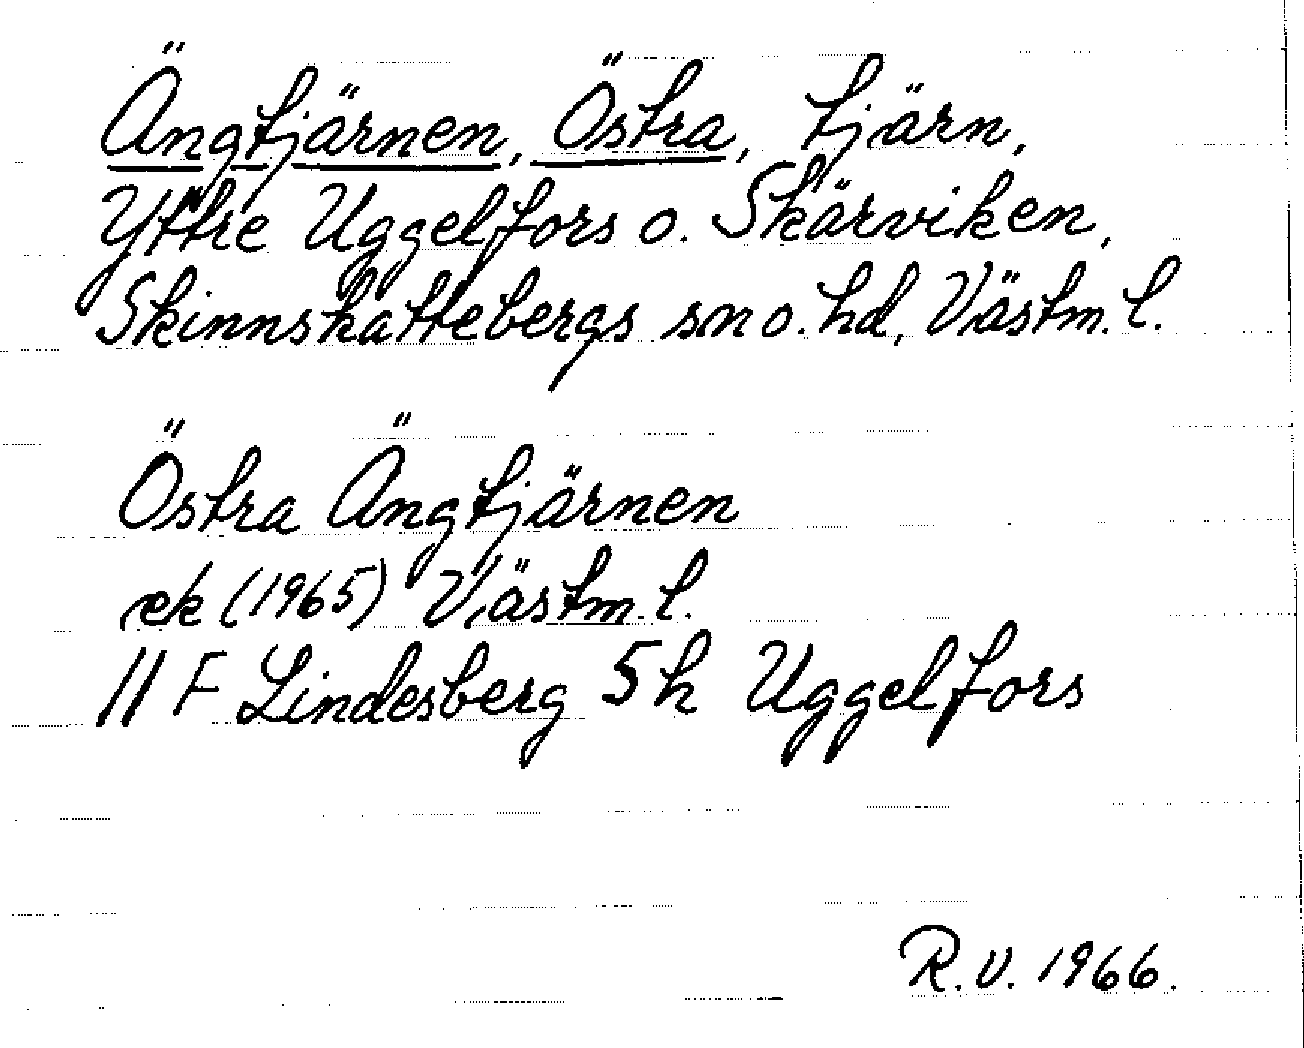 Ängtjärnen, Östra, tjärn,
Yttre Uggelfors o. Skärviken,
Skinnskattebergs sn o. hd, Västm. l.
Östra Ängtjärnen
ek (1965) Västm. l.
11 F Lindesberg 5h Uggelfors
R.V. 1966.